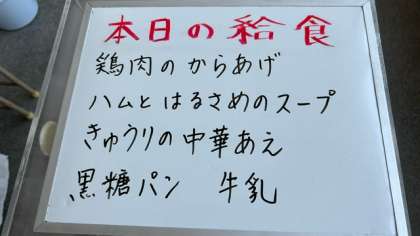 本日の給食
鶏肉のからあげ
ハムとはるさめのスープ
きゅうりの中華あえ
黒糖パン 牛乳